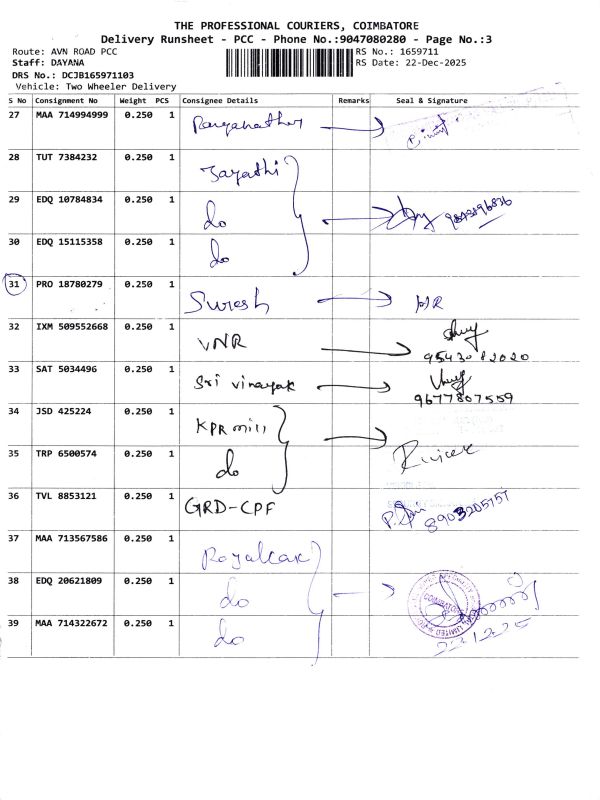 THE PROFESSIONAL COURIERS, COIMBATORE
Delivery Runsheet - PCC - Phone No.:9047080280 - Page No.:3
Route: AVN ROAD PCC
RS No.: 1659711
Staff: DAYANA
RS Date: 22-Dec-2025
DRS No.: DCJB165971103
Vehicle: Two Wheeler Delivery
S No Consignment No Weight PCS Consignee Details Remarks Seal & Signature
27 MAA 714994999 0.250 1
28 TUT 7384232 0.250 1 Jayathi
29 EDQ 10784834 0.250 1 do
30 EDQ 15115358 0.250 1 do
31 PRO 18780279 0.250 1 Suresh
32 IXM 509552668 0.250 1 VNR 9543082020
33 SAT 5034496 0.250 1 Sri Vinayak 9677807559
34 JSD 425224 0.250 1 KPR mill
35 TRP 6500574 0.250 1 do
36 TVL 8853121 0.250 1 GRD-CPF 8903205757
37 MAA 713567586 0.250 1
38 EDQ 20621809 0.250 1 do
39 MAA 714322672 0.250 1 do